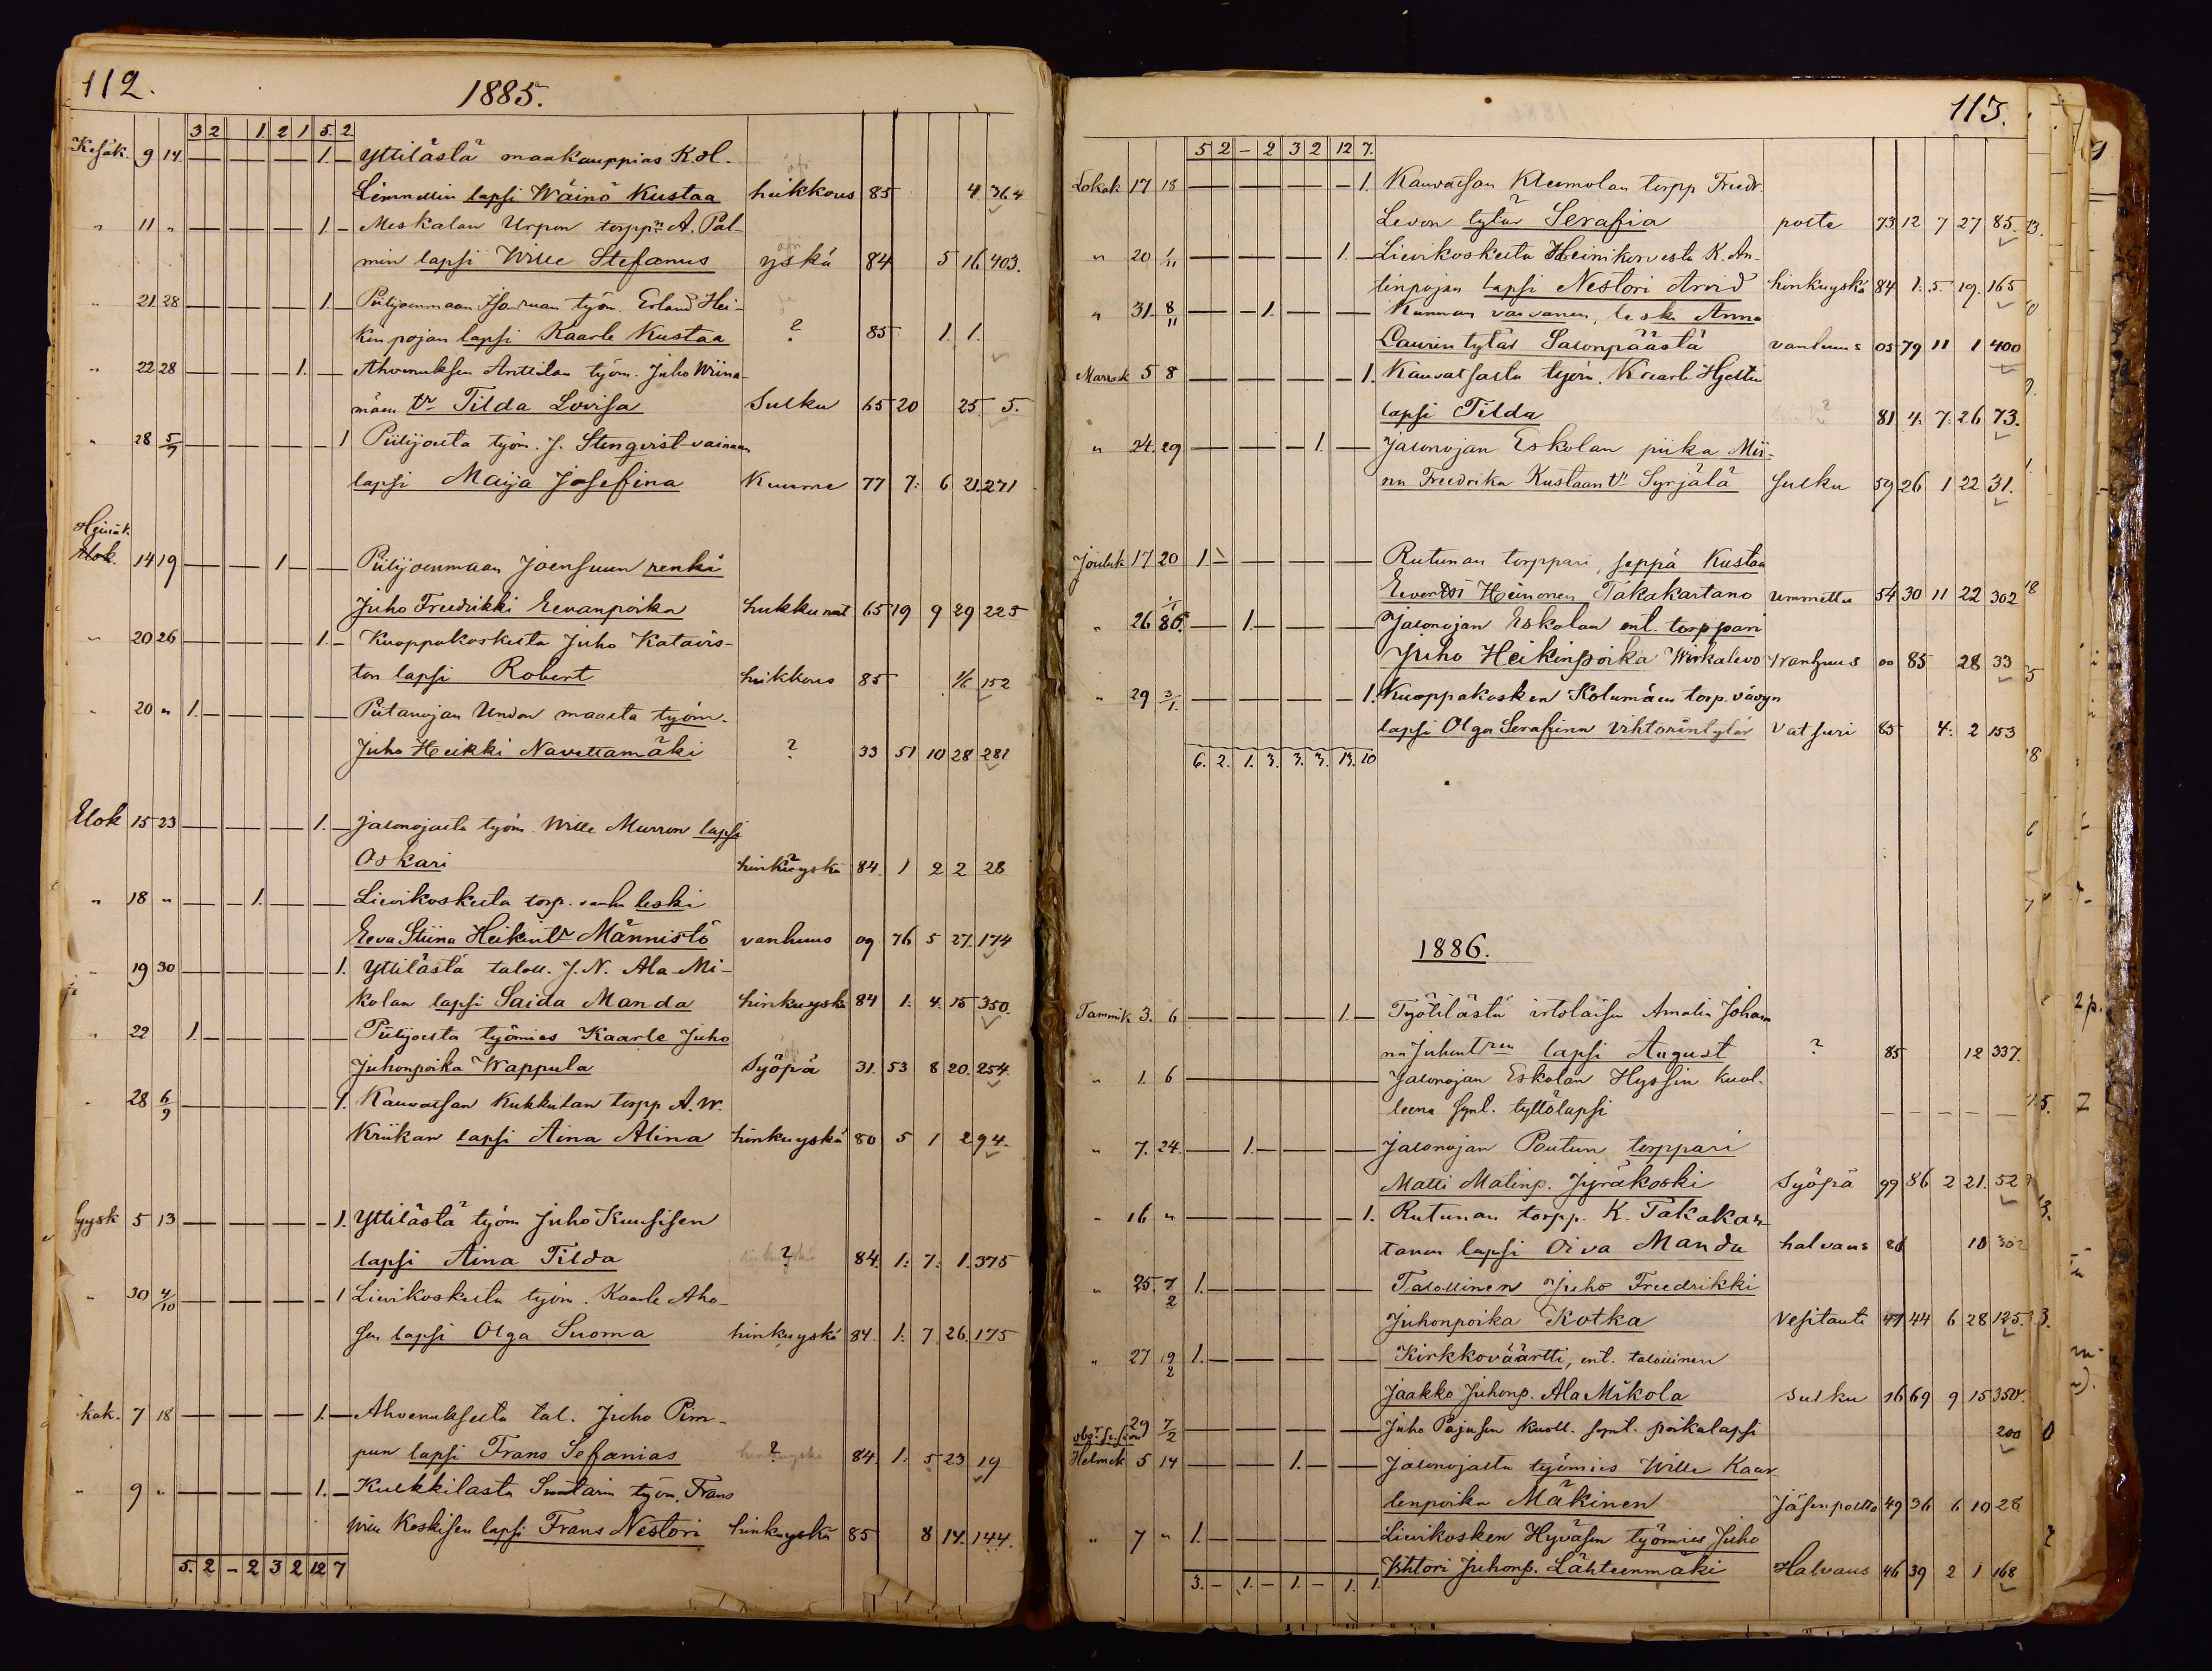 112.
1885.
3 2 1. 2 1 5. 2
Kesäk. 9 14. 1. Yttilästä maakauppias K. H.
Linnellin lapsi Wäinö Kustaa heikkous 85 4 364
" 11 " 1. Meskalan Urpon torpp:n A. Pal-
min lapsi Wille Stefanus yskä 84 5 16 403.
" 21 28 1. Piilijoenmaan työm. Erland Hei-
kin pojan lapsi Kaarle Kustaa ? 85 1. 1.
" 22 28 1. Ahvenuksen Anttilan työm. Juho Wiina-
mäen tr Tilda Lovisa Sulku 65 20 25 5.
" 28 5/7 1 Piilijoelta työm. J. Stenqvist-vainaan
lapsi Maija Josefina Kuume 77 7: 6 21. 271
Heinäk.
Elok. 14 19 1 Piilijoenmaan Joensuun renki
Juho Freedrikki Eevanpoika hukkunut 65 19 9 29 225
" 20 26 1. Kuoppakoskelta Juho Katavis-
ton lapsi Robert heikkous 85 152
" 20 " 1. Piitanojan Undon maalta työm.
Juho Heikki Navettamäki ? 33 51 10 28 281
Elok 15 23 1. Jalonojalta työm. Wille Murron lapsi
Oskari hinkuyskä 84. 1 2 2 28
" 18 " 1. Lievikoskelta torp. vanha leski
Eeva Stiina Heikintr Männistö vanhuus 09 76 5 27. 174
" 19 30 1. Yttilästä taloll. J. N. Ala-Mi-
kolan lapsi Saida Manda hinkuyskä 84 1. 4. 15 350.
" 22 1. Piilijoelta työmies Kaarle Juho
Juhonpoika Wappula Syöpä 31. 53 8 20. 254.
" 28 6/9 1. Kauvatsan Kukkulan torpp A. W.
Kriikan lapsi Aina Alina hinkuyskä 80 5 1 2 94.
Syysk 5 13 1. Yttilästä työm Juho Kuusisen
lapsi Aina Tilda ? 84. 1: 7. 1. 375
" 30 4/10 1 Lievikoskelta työm. Kaarle Aho-
sen lapsi Olga Suoma hinkuyskä 84. 1. 7. 26. 175
kak. 7 18 1. Ahvenukselta tal. Juho Pim-
pun lapsi Frans Sefanias ? 84. 1. 5 23 19
" 9 " 1. Kulkkilasta työm. Frans
Wille Koskisen lapsi Frans Nestori hinkuyskä 85 8 14. 144.
5. 2 - 2 3 2 12 7
113.
5 2 - 2 3 2 12 7.
Lokak 17 18 1. Kauvatsan Kleemolan torpp Freedr.
Levon tytär Serafia polte 73 12 7 27 85.
" 20 1/11 1. Lievikoskelta Heinikorvesta K. An-
tinpojan lapsi Nestori Arvid hinkuyskä 84 1. 5. 19. 165
" 31. 8/11 1. Kunnan vaivanen, leski Anna
Laurin tytär Salonpäästä vanhuus 05 79 11 1 400
Marrask 5 8 1. Kauvatsalta työm. Kaarle Hjeltin
lapsi Tilda ? 81 4. 7. 26 73.
" 24. 29 1. Jalonojan Eskolan piika Mii-
na Freedrika Kustaan tr Syrjälä Sulku 59 26 1 22 31.
Jouluk 17 20 1. Rutunan torppari, seppä Kustaa
Eevertti Heinonen Takakartano ummetta 54 30 11 22 302
" 26 1/1 86. 1. Jalonojan Eskolan ent. torppari
Juho Heikinpoika Wirkalevo Wanhuus 00 85 28 33
" 29 3/1. 1. Kuoppakosken Kolumäen torp. vävyn
lapsi Olga Serafiina Vihtorintytär Vatsuri 85 4. 2 153
6. 2. 1. 3. 3. 3. 13. 10
1886.
Tammik 3. 6 1. Työlilästä irtolaisen Amalia Johan
na Juhontren lapsi August ? 85 12 337.
" 1. 6 Jalonojan Eskolan Hyssin kuol-
leena synt. tyttölapsi
" 7. 24. 1. Jalonojan Poutun torppari
Matti Matinp. Jyräkoski Syöpä 99 86 2 21. 52
" 16 " 1. Rutunan torpp. K. Takakar-
tanon lapsi Oiva Manda halvaus 86 10 302
" 25. 7/2 1. Talollinen Juho Freedrikki
Juhonpoika Kotka Vesitauti 41 44 6 28 125.
" 27 19/2 1. Kirkkoväärtti, ent. talollinen
Jaakko Juhonp. Ala Mikola Sulku 16 69 9 15 350.
29 7/2 Juho Pajusen kuoll. synt. poikalapsi 200
Helmik 5 14 1. Jalonojalta työmies Wille Kaar-
lenpoika Mäkinen Jäsenpoltto 49 36 6 10 28
" 7 " 1. Lievikosken Hyväsen työmies Juho
Vihtori Juhonp. Lähteenmäki Halvaus 46 39 2 1 168
3. - 1. - 1. - 1. 1.